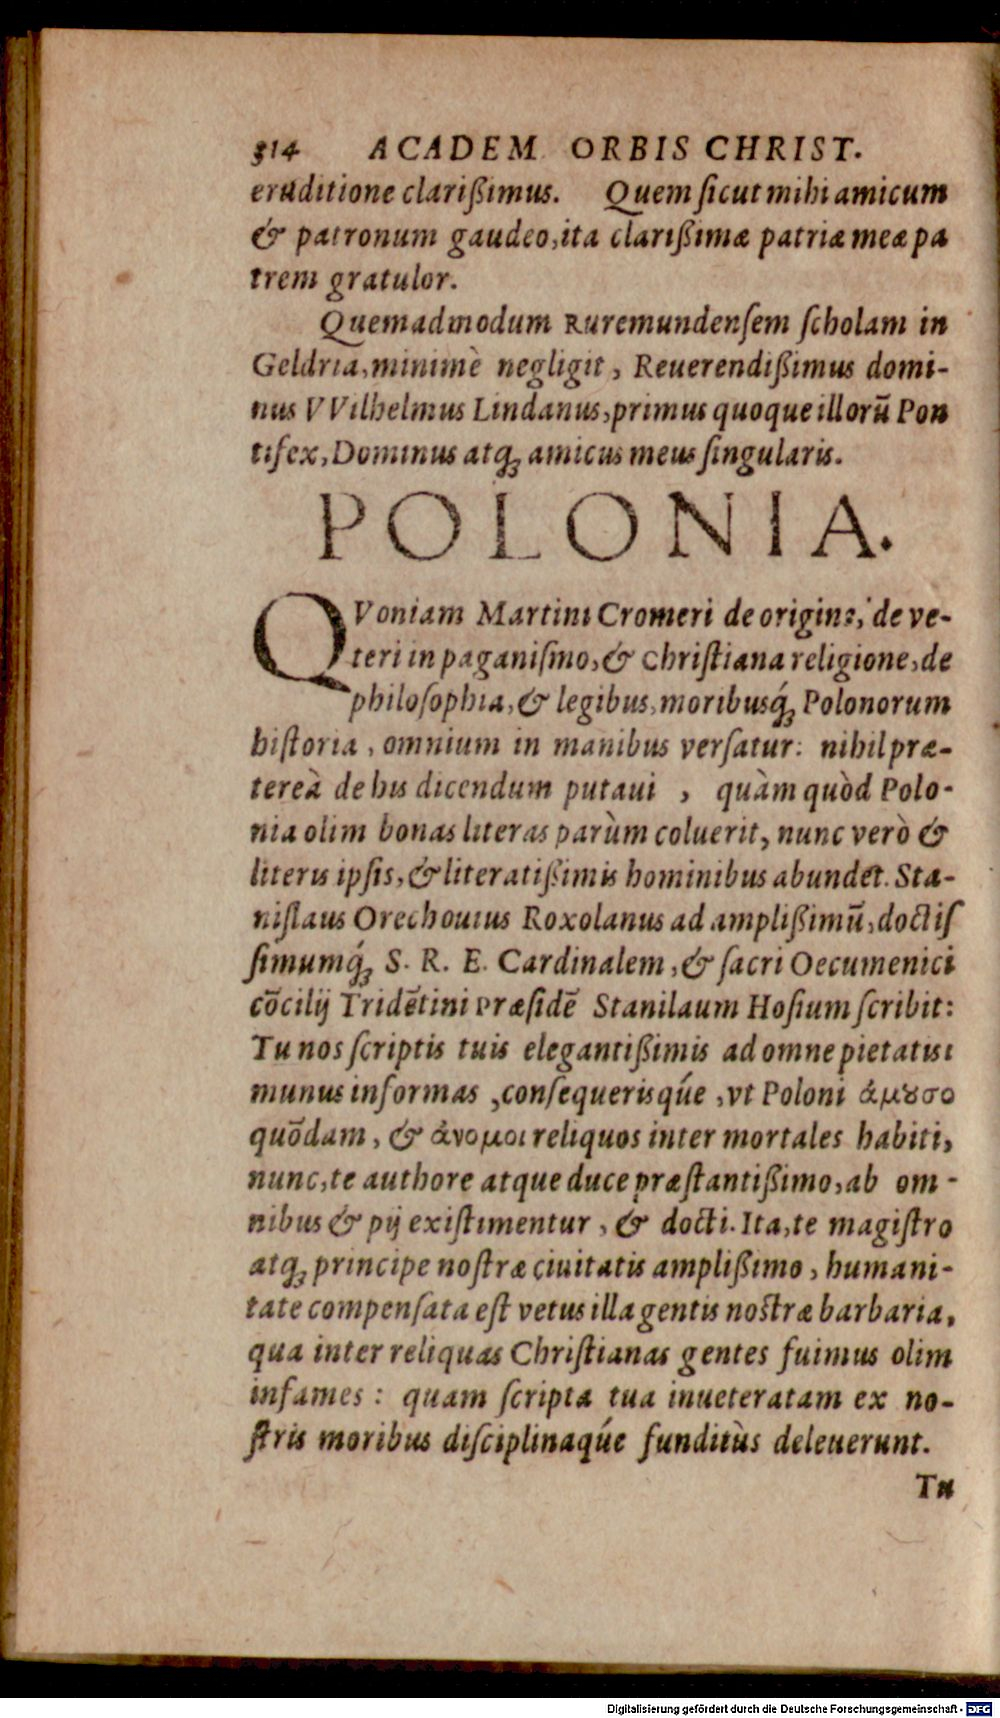 314 ACADEM ORBIS CHRIST.
eruditione clarißimus. Quem ſicut mihi amicum
& patronum gaudeo,ita clarißimæ patriæ meæ pa
trem gratulor.
Quemadmodum Ruremundenſem ſcholam in
Geldria,minimè negligit, Reuerendißimus domi-
nus VVilhelmus Lindanus,primus quoque illorū Pon
tifex,Dominus atqꝫ amicus meus ſingularis.
POLONIA.
QVoniam Martini Cromeri de origine, de ve-
teri in paganiſmo,& Chriſtiana religione,de
philoſophia,& legibus,moribusq́ꝫ Polonorum
hiſtoria, omnium in manibus verſatur: nihil præ-
tereà de his dicendum putaui , quàm quòd Polo-
nia olim bonas literas parùm coluerit, nunc verò &
literis ipſis,& literatißimis hominibus abundet. Sta-
niſlaus Orechouius Roxolanus ad amplißimū,doctiſ
ſimumq́ꝫ S. R. E. Cardinalem,& ſacri Oecumenici
cōcilij Tridētini Præſidē Stanilaum Hoſium ſcribit:
Tu nos ſcriptis tuis elegantißimis ad omne pietatis
munus informas ,conſequerisqúe ,vt Poloni ἀμȣσο
quōdam, & ἀνομοι reliquos inter mortales habiti,
nunc,te authore atque duce præſtantißimo,ab om-
nibus & pij exiſtimentur, & docti. Ita,te magiſtro
atqꝫ principe noſtræ ciuitatis amplißimo, humani-
tate compenſata eſt vetus illa gentis noſtræ barbaria,
qua inter reliquas Chriſtianas gentes fuimus olim
infames: quam ſcripta tua inueteratam ex no-
ſtris moribus diſciplinaqúe funditùs deleuerunt.
Tu
Digitalisierung gefördert durch die Deutsche Forschungsgemeinschaft - DFG